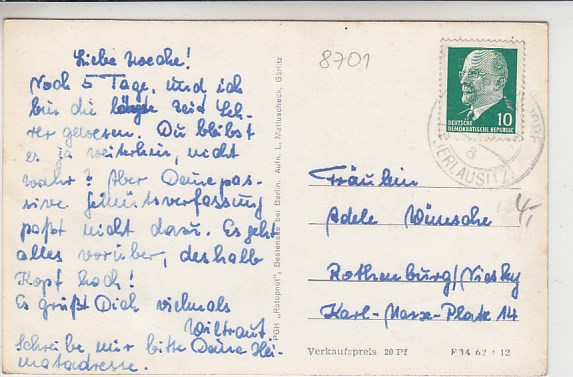 Liebe
Noch 5 Tage, und ich
bin die längste Zeit Leh-
rer gewesen. Du bleibst
es ja weiterhin, nicht
wahr? Aber Deine pas-
sive Gemütsverfassung
paßt nicht dazu. Es geht
alles vorüber, deshalb
Kopf hoch!
Es grüßt Dich vielmals
Wiltraut
Schreibe mir bitte Deine Hei-
matadresse.
PGH „Rotophot", Bestensee bei Berlin. Aufn. L. Mattuscheck, Görlitz
8701
10
DEUTSCHE
DEMOKRATISCHE REPUBLIK
ERLAUSITZ
a
4,-
Fräulein
Adele Wünsche
Rothenburg/Niesky
Karl-Marx-Platz 14
Verkaufspreis 20 Pf
F 34 62 12